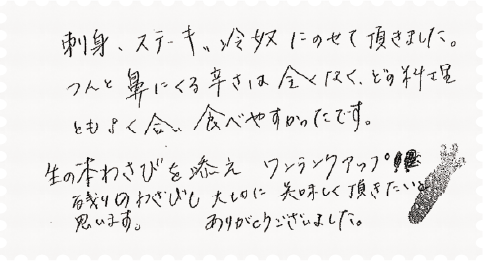 刺身、ステーキ、冷奴にのせて頂きました。
つんと鼻にくる辛さは全くなく、どの料理
ともよく合い食べやすかったです。
生の本わさびを添えワンランクアップ
残りのわさびも大切に美味しく頂きたいと
思います。 ありがとうございました。